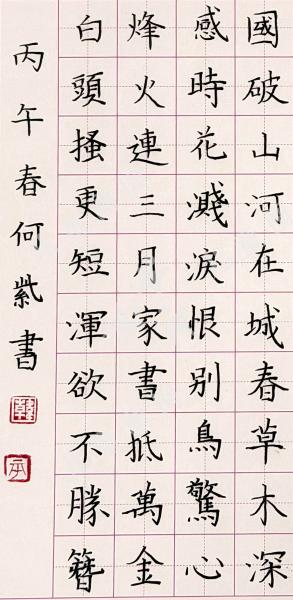 國破山河在城春草木深
感時花濺淚恨別鳥驚心
烽火連三月家書抵萬金
白頭搔更短渾欲不勝簪
丙午春何紫書